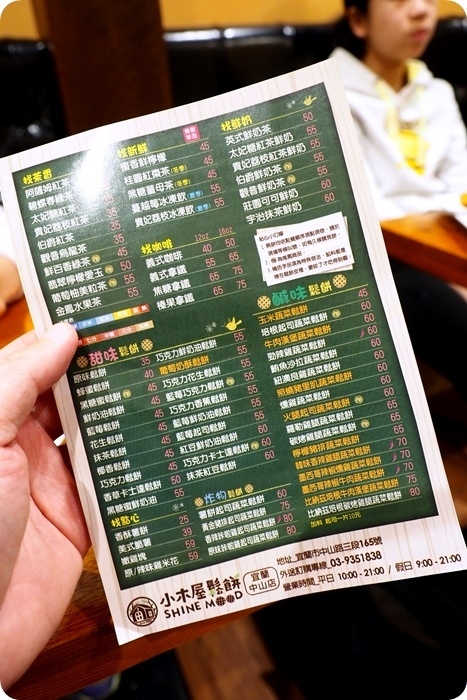 找茶香
阿薩姆紅茶
碧螺春綠茶
太妃糖紅茶
貴妃荔枝紅茶
伯爵紅茶
觀音烏龍茶
鮮白香柚茶
翡翠檸檬愛玉 50
葡萄柚果粒茶 55
金鳳水果茶 55
找新鮮
蜜香鮮檸檬 45
桂圓紅棗茶(冬季) 45
黑糖薑母茶(冬季) 45
蔓越莓冰沙飲 55
貴妃荔枝冰沙飲 55
找咖啡 12oz 16oz
義式咖啡 40 50
義式拿鐵 55 65
焦糖拿鐵 65 75
榛果拿鐵 65 75
找鮮奶
英式鮮奶茶 50
太妃糖紅茶鮮奶 55
貴妃荔枝紅茶鮮奶 55
伯爵鮮奶茶 55
觀音鮮奶茶 55
莊園可可鮮奶 60
宇治抹茶鮮奶 60
甜味鬆餅
原味鬆餅 35
蜂蜜鬆餅 40
黑糖鬆餅 45
鮮奶油鬆餅 45
藍莓鬆餅 45
花生鬆餅 45
抹茶鬆餅 45
椰香鬆餅 45
巧克力鬆餅 45
香草卡士達鬆餅 50
黑糖蜜鮮奶油 55
巧克力鮮奶油鬆餅 55
葡萄奶酥鬆餅 55
巧克力花生鬆餅 55
藍莓巧克力鬆餅 55
巧克力香蕉鬆餅 55
藍莓鮮奶油鬆餅 55
藍莓起司鬆餅 55
紅豆鮮奶油鬆餅 60
巧克力卡士達鬆餅 60
抹茶紅豆鬆餅 60
鹹味鬆餅
玉米蔬菜鬆餅 45
培根起司蔬菜鬆餅 60
牛肉漢堡蔬菜鬆餅 60
勁辣雞蔬菜鬆餅 60
鮪魚沙拉蔬菜鬆餅 60
紐澳良雞蔬菜鬆餅 60
照燒豬里肌蔬菜鬆餅 60
燻雞蔬菜鬆餅 60
火腿起司蔬菜鬆餅 60
羅勒雞腿蔬菜鬆餅 65
碳烤雞腿蔬菜鬆餅 65
檸檬豬排蔬菜鬆餅 65
椒香辣雞蔬菜鬆餅 70
墨西哥辣雞蔬菜鬆餅 70
墨西哥辣味牛肉蔬菜鬆餅 75
比納茲培根牛肉漢堡蔬菜鬆餅 75
比納茲培根碳烤雞腿蔬菜鬆餅 80
加料 起司一片10元
找點心
香酥薯餅 25
美式脆薯 39
嫩雞塊 59
原/辣味雞米花 59
炸物鬆餅
薯餅起司蔬菜鬆餅 60
黃金豬排起司蔬菜鬆餅 75
香辣炸雞起司蔬菜鬆餅 80
原味炸雞起司蔬菜鬆餅 80
小木屋鬆餅
SHINE MOOD
宜蘭
中山店
地址_宜蘭市中山路三段165號
外送訂購專線_03-9351838
營業時間_平日 10:00-21:00 / 假日 9:00-21:00